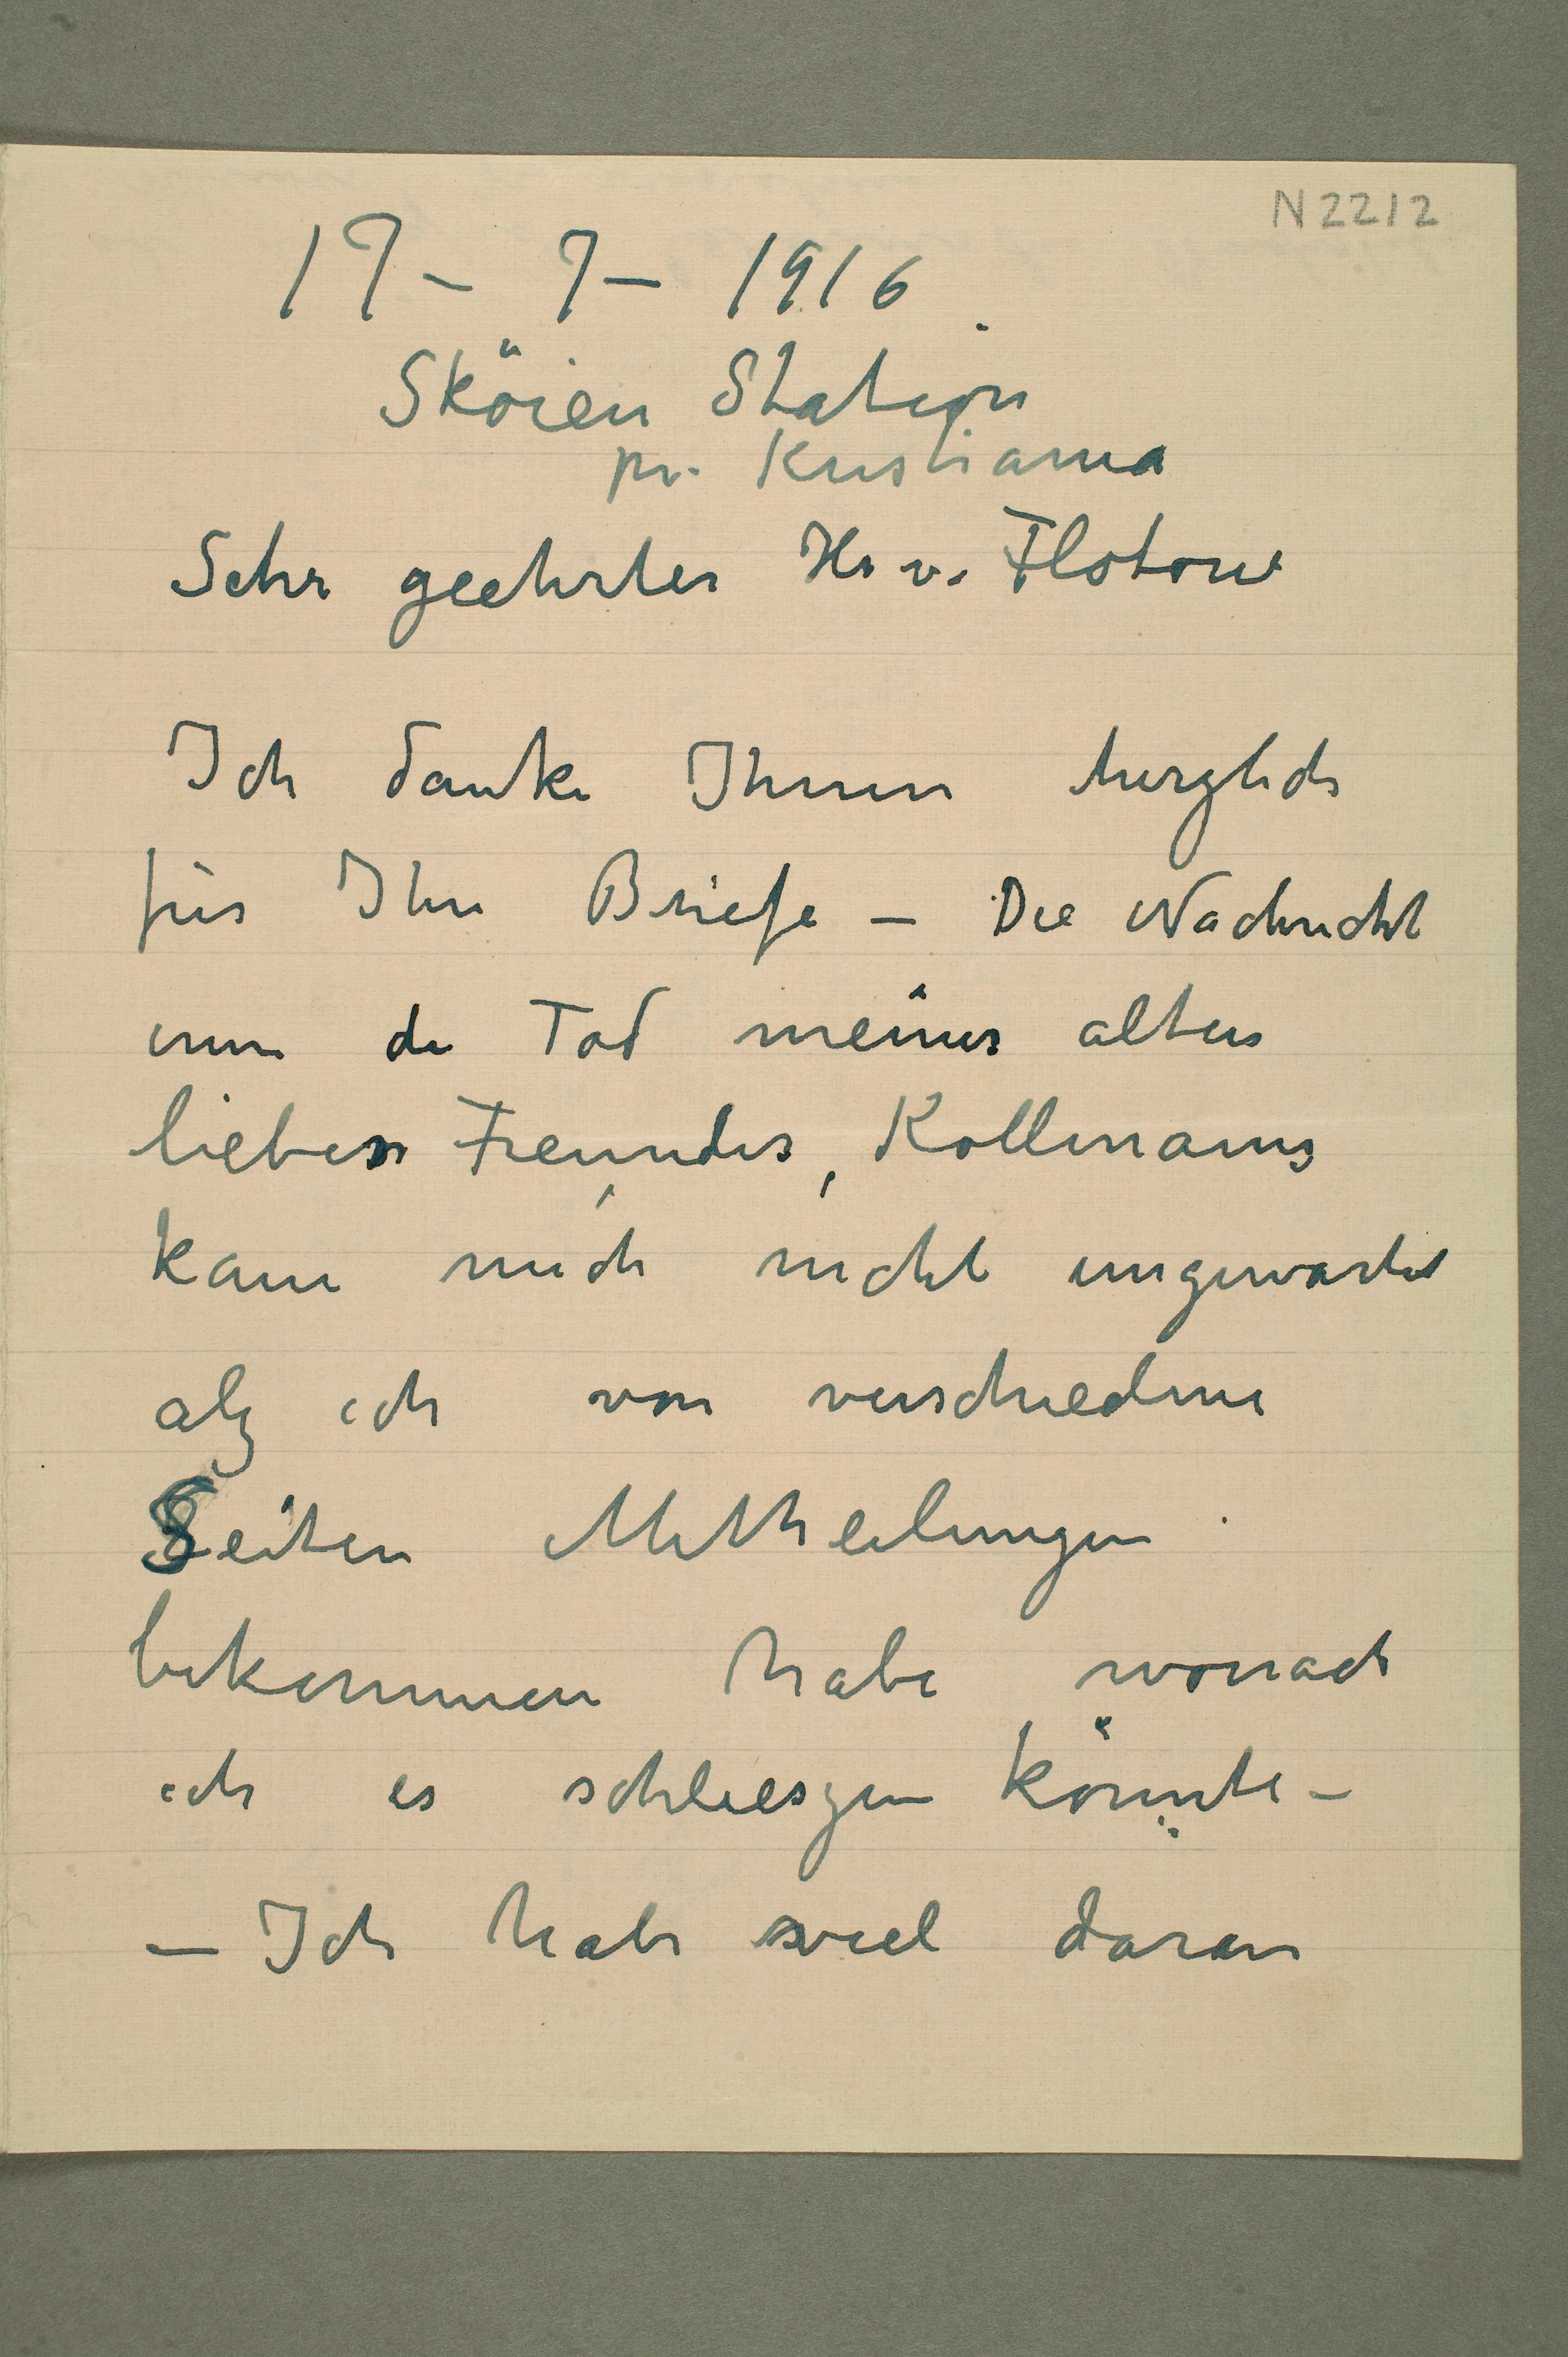 N 2212
17 – 7 – 1916
Sköien Station
pr. Kristiania
Sehr geehrter Hr v. Flotow
Ich danke Ihnen herzlich
für Ihre Briefe – Die Nachricht
um de Tod meines alten
lieben Freundes, Kollmanns
kam mich nicht ungewartet
alz ich von verschiedene
Seiten Mittheilungen
bekommen habe wonach
ich es schlieszen könnte –
– Ich habe viel daran